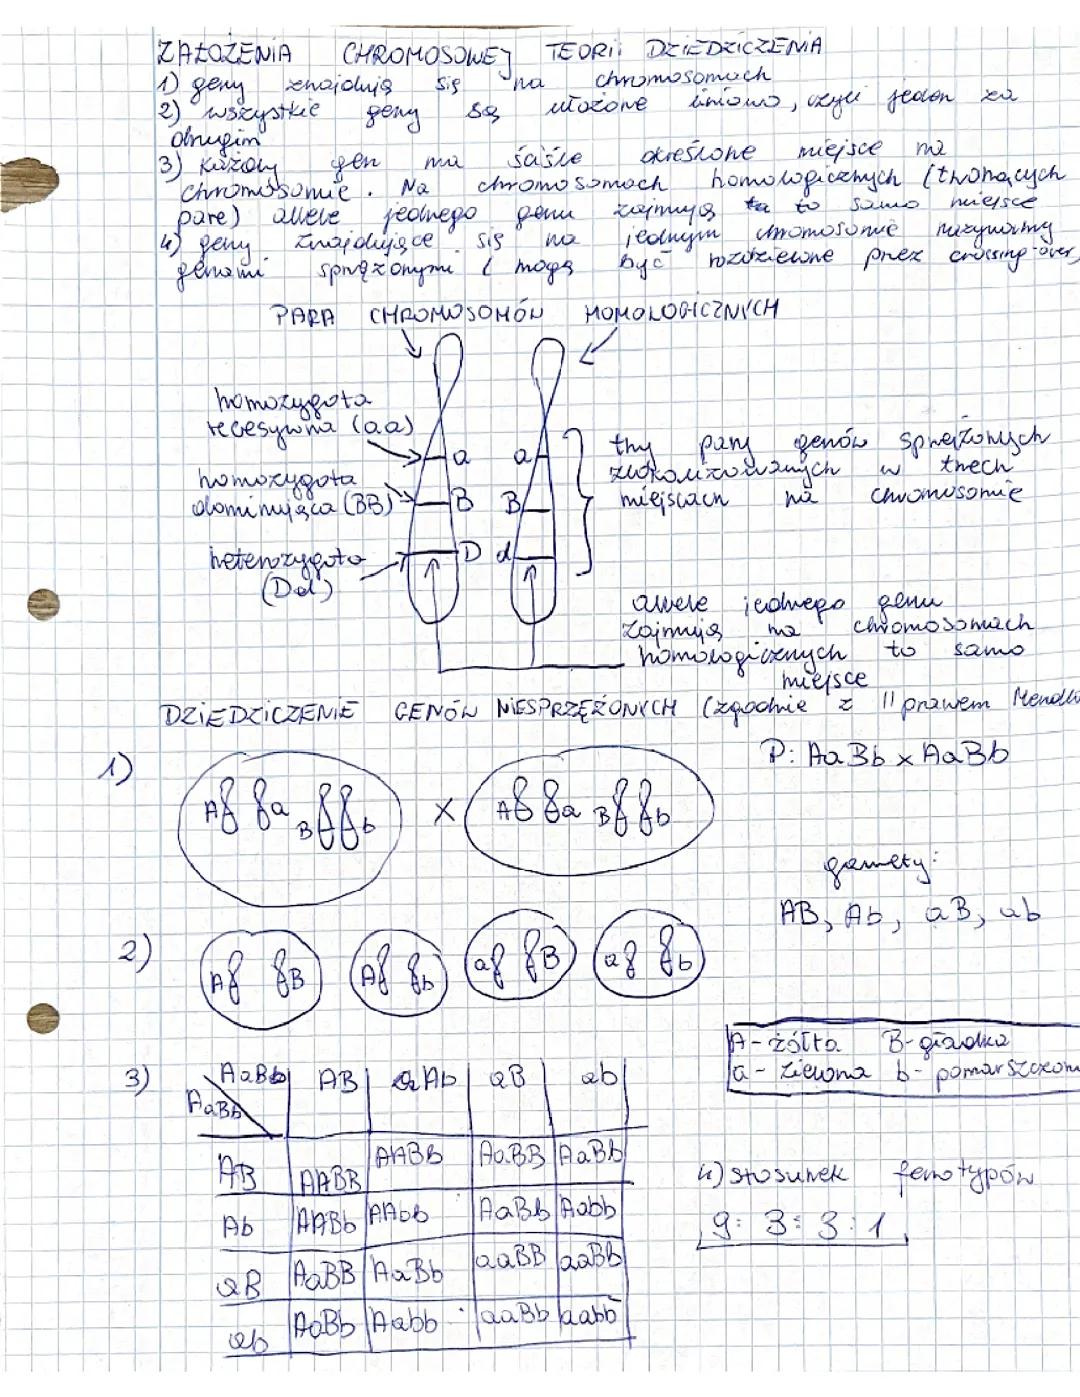 ZAŁOŻENIA CHROMOSOWEJ TEORII DZIEDZICZENIA
1) geny znajdują się na chromosomach
2) wszystkie geny są ułożone liniowo, czyli jeden za
drugim
3) każdy gen ma ściśle określone miejsce na
chromosomie. Na chromosomach homologicznych (tworzących
parę) allele jednego genu zajmują to samo miejsce
4) geny znajdujące się na jednym chromosomie nazywamy
genami sprzężonymi (mogą być rozdzielone przez crossing-over)
PARA CHROMOSOMÓW HOMOLOGICZNYCH
homozygota
recesywna (aa)
homozygota
dominująca (BB)
heterozygota
(Dd)
a a
B B
D d
trzy pary genów sprzężonych
zlokalizowanych w trzech
miejscach na chromosomie
allele jednego genu
zajmują na chromosomach
homologicznych to samo
miejsce
DZIEDZICZENIE GENÓW NIESPRZĘŻONYCH (zgodnie z II prawem Mendla
1) A a B b X A a B b
P: AaBb x AaBb
gamety:
AB, Ab, aB, ab
2) A B A b a B a b
A - żółta B - gładka
a - zielona b - pomarszczona
3) AaBb AB Ab aB ab
AaBb
AB AABB AABb AaBB AaBb
Ab AABb AAbb AaBb Aabb
aB AaBB AaBb aaBB aaBb
ab AaBb Aabb aaBb aabb
4) stosunek fenotypów
9 : 3 : 3 : 1